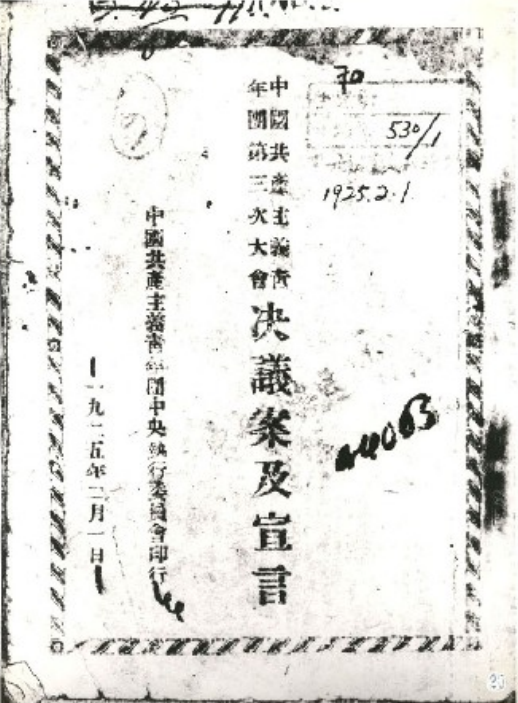 70
530/1
1925.2.1
中國共產主義青
年團第三次大會
決議案及宣言
a4063
中國共產主義青年團中央執行委員會印行
一九二五年二月一日